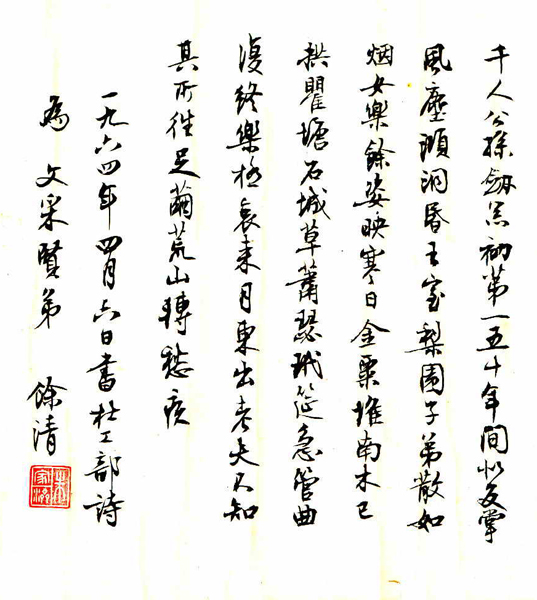 千人公孫劍器初第一五十年間似反掌
風塵澒洞昏王室梨園子弟散如
烟女樂餘姿映寒日金粟堆南木已
拱瞿塘石城草蕭瑟玳筵急管曲
復終樂極哀來月東出老夫不知
其所往足繭荒山轉愁疾
一九六四年四月六日書杜工部詩
為 文采賢弟 餘清
朱家濟